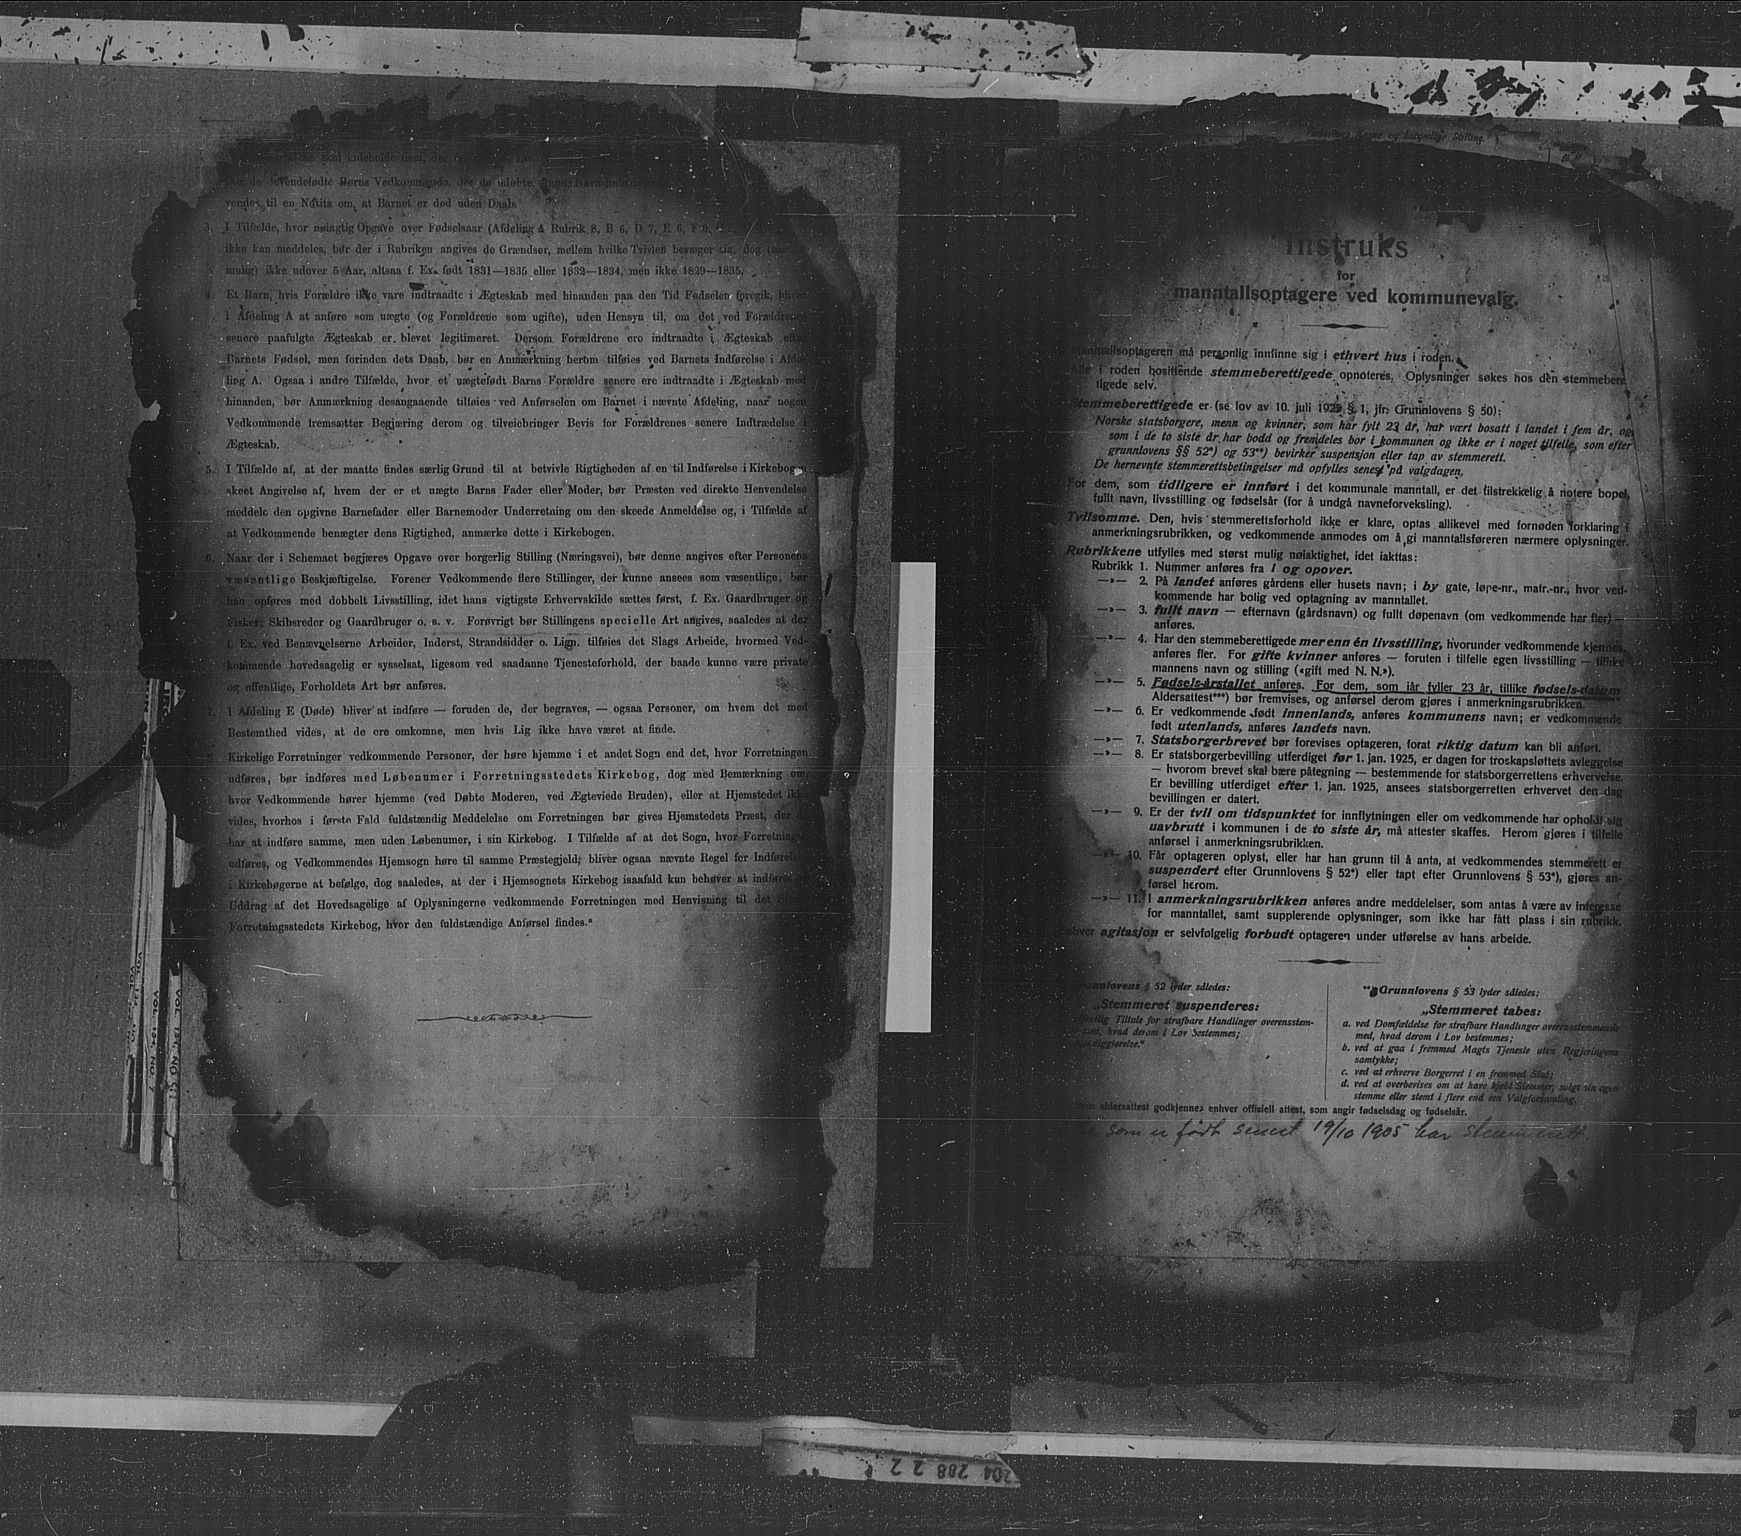 skal indeholde dem, der
levendefødte Børns Vedkommende, der dø udøbte,
vendes til en Notits om, at Barnet er død uden Daab.
3. I Tilfælde, hvor nøiagtig Opgave over Fødselsaar (Afdeling A Rubrik 8, B 6, D 7, E 6, F
ikke kan meddeles, bør der i Rubriken angives de Grændser, mellem hvilke Tvivlen bevæger sig, dog
mulig) ikke udover 5 Aar, altsaa f. Ex. født 1831—1835 eller 1832—1834, men ikke 1829—1835.
4. Et Barn, hvis Forældre ikke vare indtraadte i Ægteskab med hinanden paa den Tid Fødselen foregik, bliver
i Afdeling A at anføre som uægte (og Forældrene som ugifte), uden Hensyn til, om det ved Forældrenes
senere paafulgte Ægteskab er blevet legitimeret. Dersom Forældrene ere indtraadte i Ægteskab efter
Barnets Fødsel, men forinden dets Daab, bør en Anmærkning herom tilføies ved Barnets Indførelse i Afde-
ling A. Ogsaa i andre Tilfælde, hvor et uægtefødt Barns Forældre senere ere indtraadte i Ægteskab med
hinanden, bør Anmærkning desangaaende tilføies ved Anførselen om Barnet i nævnte Afdeling, naar nogen
Vedkommende fremsætter Begjæring derom og tilveiebringer Bevis for Forældrenes senere Indtrædelse i
Ægteskab.
5. I Tilfælde af, at der maatte findes særlig Grund til at betvivle Rigtigheden af en til Indførelse i Kirkebogen
skeet Angivelse af, hvem der er et uægte Barns Fader eller Moder, bør Præsten ved direkte Henvendelse
meddele den opgivne Barnefader eller Barnemoder Underretning om den skeede Anmeldelse og, i Tilfælde af
at Vedkommende benægter dens Rigtighed, anmærke dette i Kirkebogen.
6. Naar der i Schemaet begjæres Opgave over borgerlig Stilling (Næringsvei), bør denne angives efter Personens
væsentlige Beskjæftigelse. Forener Vedkommende flere Stillinger, der kunne ansees som væsentlige, bør
han opføres med dobbelt Livsstilling, idet hans vigtigste Erhvervskilde sættes først, f. Ex. Gaardbruger og
Fisker, Skibsreder og Gaardbruger o. s. v. Forøvrigt bør Stillingens specielle Art angives, saaledes at der
f. Ex. ved Benævnelserne Arbeider, Inderst, Strandsidder o. Lign. tilføies det Slags Arbeide, hvormed Ved-
kommende hovedsagelig er sysselsat, ligesom ved saadanne Tjenesteforhold, der baade kunne være private
og offentlige, Forholdets Art bør anføres.
7. I Afdeling E (Døde) bliver at indføre — foruden de, der begraves, — ogsaa Personer, om hvem det med
Bestemthed vides, at de ere omkomne, men hvis Lig ikke have været at finde.
Kirkelige Forretninger vedkommende Personer, der høre hjemme i et andet Sogn end det, hvor Forretningen
udføres, bør indføres med Løbenumer i Forretningsstedets Kirkebog, dog med Bemærkning om
hvor Vedkommende hører hjemme (ved Døbte Moderen, ved Ægteviede Bruden), eller at Hjemstedet ikke
vides, hvorhos i første Fald fuldstændig Meddelelse om Forretningen bør gives Hjemstedets Præst, der
har at indføre samme, men uden Løbenumer, i sin Kirkebog. I Tilfælde af at det Sogn, hvor Forretningen
udføres, og Vedkommendes Hjemsogn høre til samme Præstegjeld, bliver ogsaa nævnte Regel for Indførelse
i Kirkebøgerne at befølge, dog saaledes, at der i Hjemsognets Kirkebog isaafald kun behøver at indføres
Uddrag af det Hovedsagelige af Oplysningerne vedkommende Forretningen med Henvisning til det
Forretningsstedets Kirkebog, hvor den fuldstændige Anførsel findes.“
Navne og borgerlige Stilling.
Instruks
for
manntallsoptagere ved kommunevalg.
Manntallsoptageren må personlig innfinne sig i ethvert hus i roden.
Alle i roden bosittende stemmeberettigede opnoteres. Oplysninger søkes hos den stemmebere
tigede selv.
Stemmeberettigede er (se lov av 10. juli 1925 § 1, jfr. Grunnlovens § 50):
Norske statsborgere, menn og kvinner, som har fylt 23 år, har vært bosatt i landet i fem år, og
som i de to siste år har bodd og fremdeles bor i kommunen og ikke er i noget tilfelle, som efter
grunnlovens §§ 52*) og 53**) bevirker suspensjon eller tap av stemmerett.
De hernevnte stemmerettsbetingelser må opfylles senest på valgdagen.
For dem, som tidligere er innført i det kommunale manntall, er det tilstrekkelig å notere bopel,
fullt navn, livsstilling og fødselsår (for å undgå navneforveksling).
Tvilsomme. Den, hvis stemmerettsforhold ikke er klare, optas allikevel med fornøden forklaring i
anmerkningsrubrikken, og vedkommende anmodes om å gi manntallsføreren nærmere oplysninger.
Rubrikkene utfylles med størst mulig nøiaktighet, idet iakttas:
Rubrikk 1. Nummer anføres fra 1 og opover.
—»— 2. På landet anføres gårdens eller husets navn; i by gate, løpe-nr., matr.-nr., hvor ved-
kommende har bolig ved optagning av manntallet.
—»— 3. fullt navn — efternavn (gårdsnavn) og fullt døpenavn (om vedkommende har fler) —
anføres.
—»— 4. Har den stemmeberettigede mer enn én livsstilling, hvorunder vedkommende kjennes,
anføres fler. For gifte kvinner anføres — foruten i tilfelle egen livsstilling — tillike
mannens navn og stilling («gift med N. N.»).
—»— 5. Fødsels-årstallet anføres. For dem, som iår fyller 23 år, tillike fødsels-datum
Aldersattest***) bør fremvises, og anførsel derom gjøres i anmerkningsrubrikken.
—»— 6. Er vedkommende født innenlands, anføres kommunens navn; er vedkommende
født utenlands, anføres landets navn.
—»— 7. Statsborgerbrevet bør forevises optageren, forat riktig datum kan bli anført.
—»— 8. Er statsborgerbevilling utferdiget før 1. jan. 1925, er dagen for troskapsløftets avleggelse
— hvorom brevet skal bære påtegning — bestemmende for statsborgerrettens erhvervelse.
Er bevilling utferdiget efter 1. jan. 1925, ansees statsborgerretten erhvervet den dag
bevillingen er datert.
—»— 9. Er der tvil om tidspunktet for innflytningen eller om vedkommende har opholdt sig
uavbrutt i kommunen i de to siste år, må attester skaffes. Herom gjøres i tilfelle
anførsel i anmerkningsrubrikken.
—»— 10. Får optageren oplyst, eller har han grunn til å anta, at vedkommendes stemmerett er
suspendert efter Grunnlovens § 52*) eller tapt efter Grunnlovens § 53*), gjøres an-
førsel herom.
—»— 11. I anmerkningsrubrikken anføres andre meddelelser, som antas å være av interesse
for manntallet, samt supplerende oplysninger, som ikke har fått plass i sin rubrikk.
Enhver agitasjon er selvfølgelig forbudt optageren under utførelse av hans arbeide.
Grunnlovens § 52 lyder således:
„Stemmeret suspenderes:
Tiltale for strafbare Handlinger overensstem-
med, hvad derom i Lov bestemmes;
**) Grunnlovens § 53 lyder således:
„Stemmeret tabes:
a. ved Domfældelse for strafbare Handlinger overensstemmende
med, hvad derom i Lov bestemmes;
b. ved at gaa i fremmed Magts Tjeneste uten Regjeringens
samtykke;
c. ved at erhverve Borgerret i en fremmed Stat;
d. ved at overbevises om at have kjøbt Stemmer, solgt sin egen
stemme eller stemt i flere end een Valgforsamling.
Som aldersattest godkjennes enhver offisiell attest, som angir fødselsdag og fødselsår.
som er født senest 19/10 1905 har stemmerett.
204 288 2 2